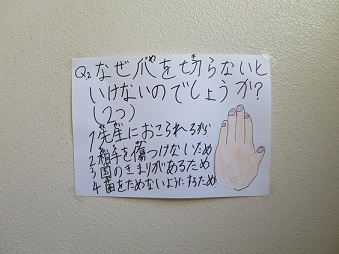 Q2なぜ爪を切らないと
いけないのでしょうか?
(2つ)
1先産におこられるから
2相手を傷つけないため
3国のきまりがあるため
4菌をためないようにするため